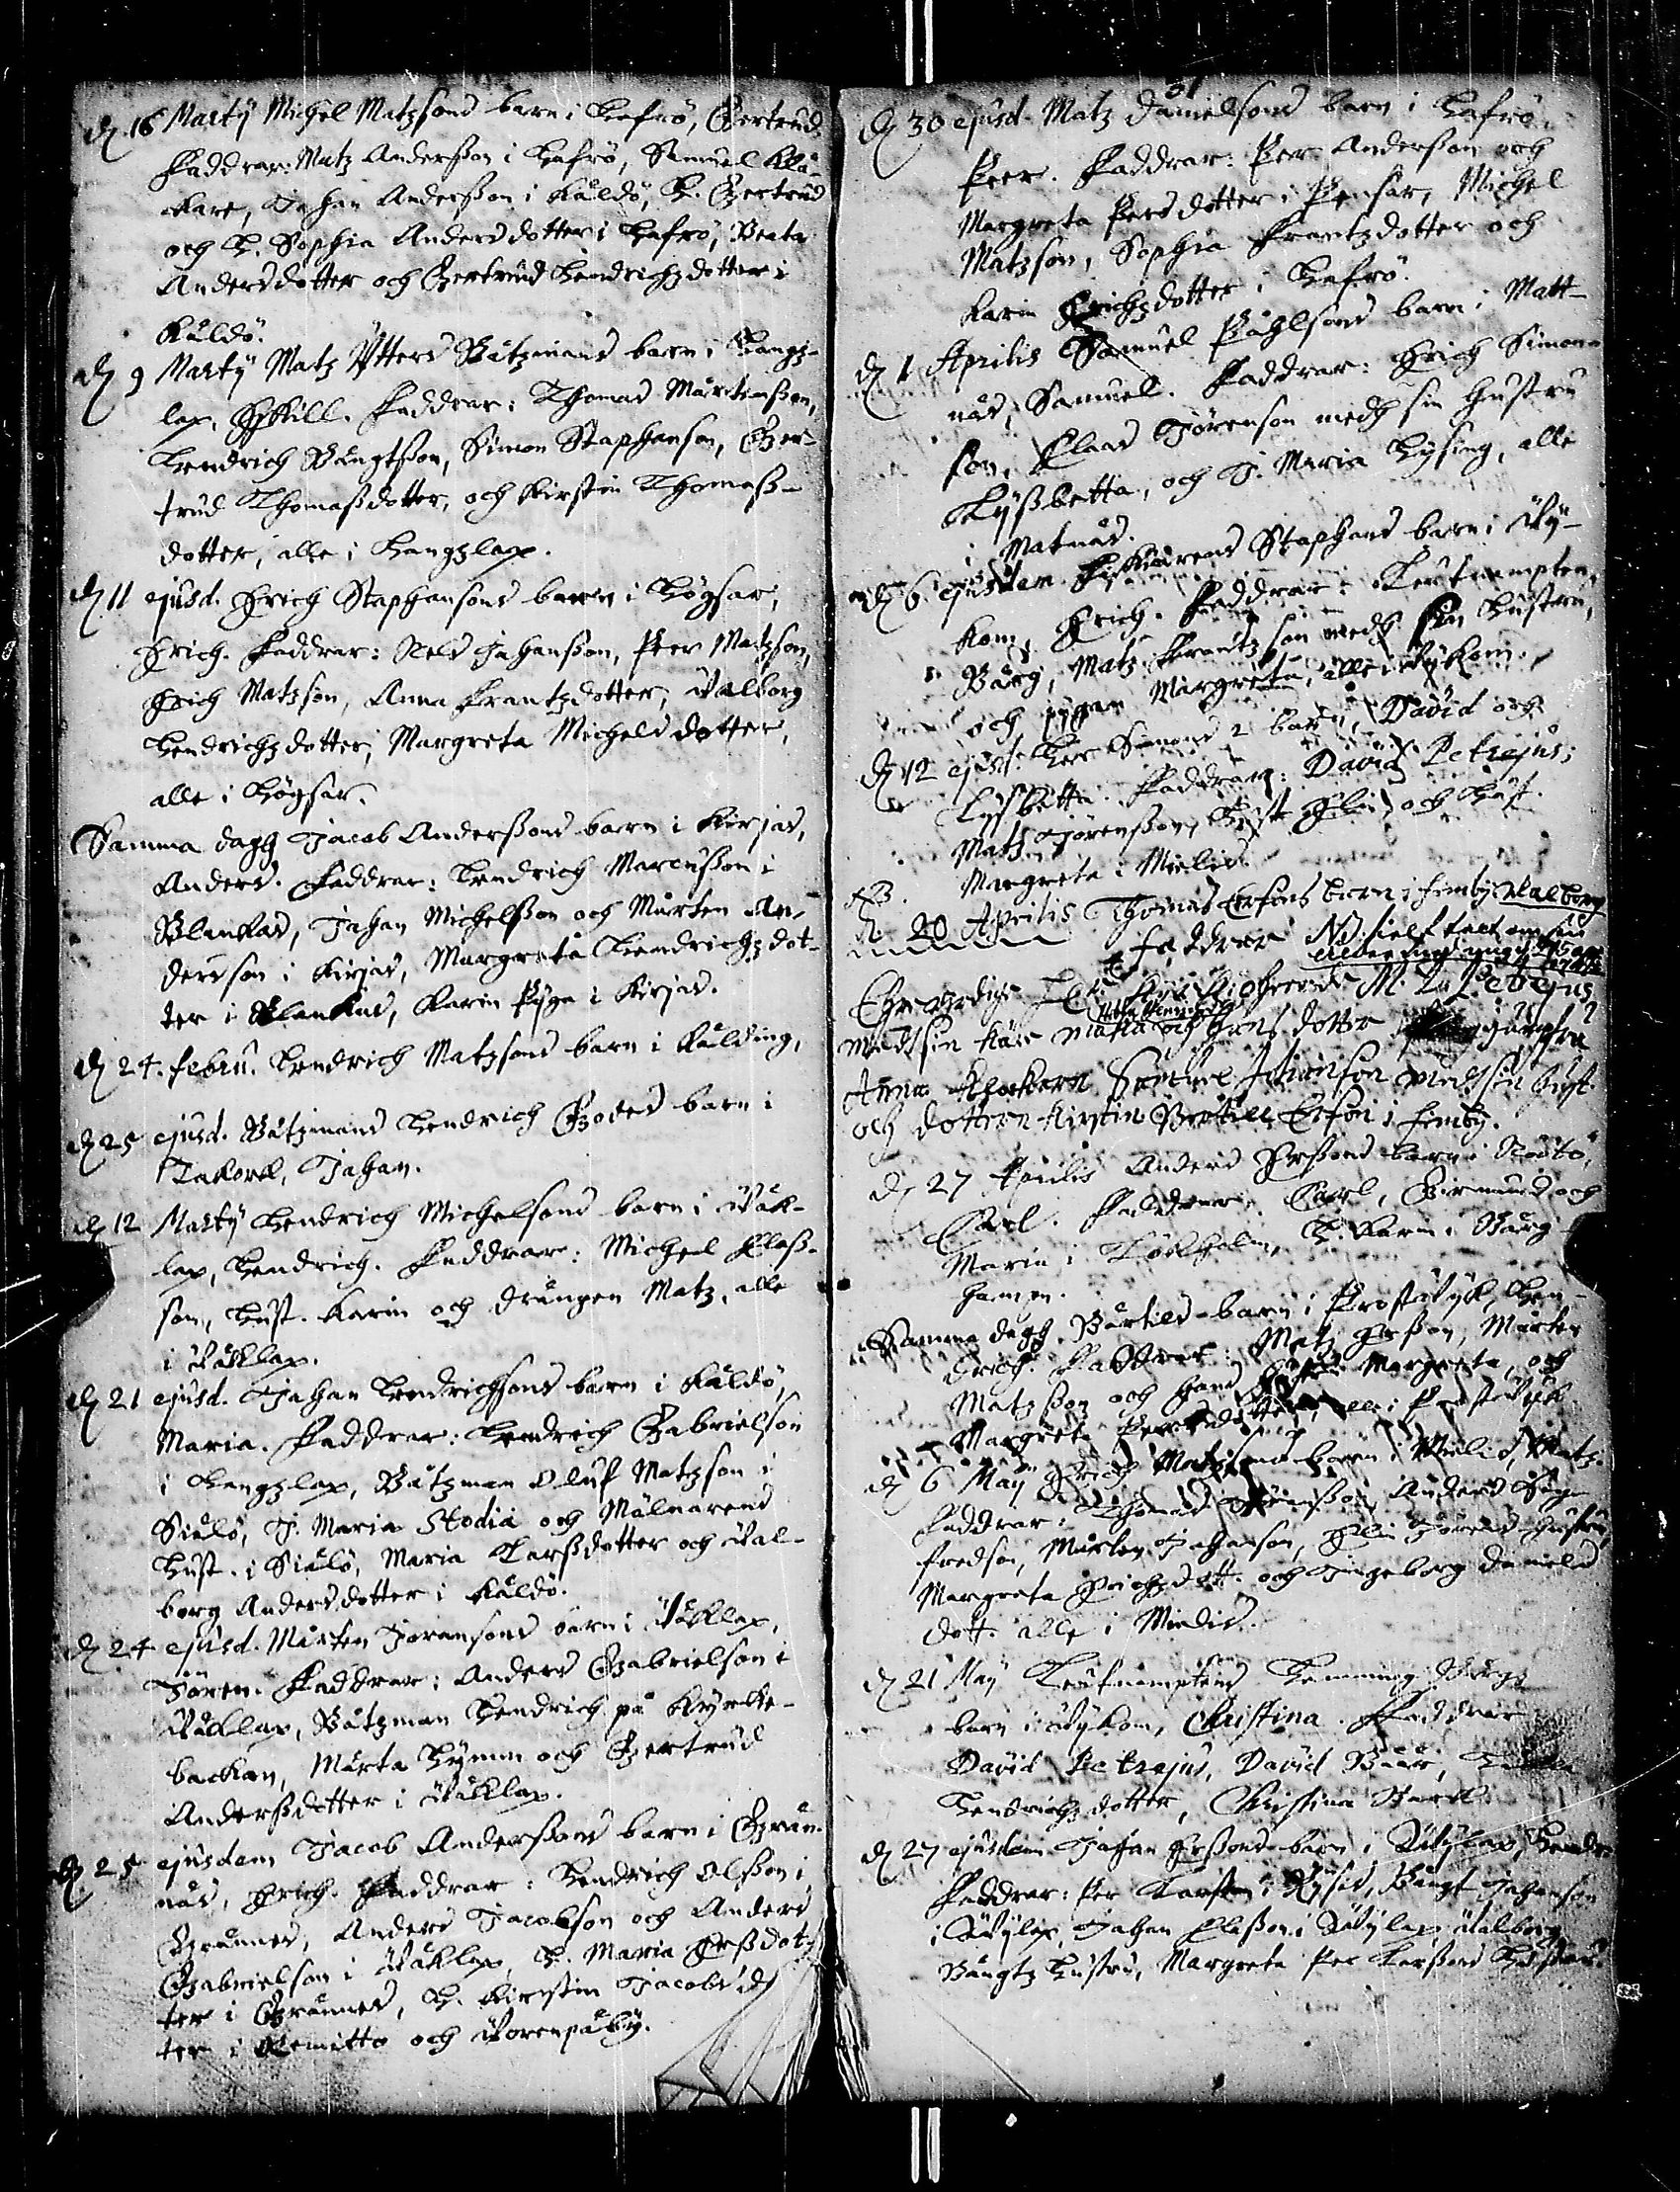 d. 16 Marty Michel Matzsons barn i Lofsrö, Gertrud.
Faddrar: Matz Anderßon i Lofsrö, Samuel Klå-
kare, Johan Anderßon i Kuldö, H. Gertrud
och H. Sophia Andersdotter i Lofsrö, Beata
Andersdotter och Gertrud Hendrichzdotter i
Kåldö.
d. 9 Marty Matz Ytters Båtzmans barn i Langz-
lax, Eskill. Faddrar: Thomas Mårtenßon,
Hendrich Bängtßon, Simon Staphanson, Ger-
trud Thomaßdotter, och Kirstin Thomaß-
dotter, alle i Langzlax.
d. 11 ejusd. Erich Staphansons barn i Högsar,
Erich. Faddrar: Nels Johanßon, Peer Matzson,
Erich Matzson, Anna Frantzdotter, Valborg
Hendrichzdotter, Margreta Michelsdotter,
alle i Högsar.
Samma dagh Jacob Anderßons barn i Kirjas,
Anders. Faddrar: Hendrich Marcusson i
Blankas, Johan Michelßon och Mårten An-
dersson i Kirjas, Margreta Hendrichzdot-
ter i Blankas, Karin Pyga i Kirjas.
d. 24. febru. Hendrich Matzsons barn i Kulding,
d. 25 ejusd. Båtzmans Hendrich Godes barn i
Takork, Johan.
d. 12 Marty Hendrich Michelsons barn i Väk-
lax, Hendrich. Faddrar: Michel Claß-
son, Hust. Karin och drängen Matz, alle
i Väklax.
d. 21 ejusd. Johan Hendrichsons barn i Kåldö,
Maria. Faddrar: Hendrich Gabrielson
i Langzlax, Båtzman Oluf Matzson i
Siälö, J. Maria Stodia och Målnarens
Hust. i Siälö, Maria Larßdotter och Val-
borg Andersdotter i Kåldö.
d. 24 ejusd. Mårten Joransons barn i Väklax,
Jören. Faddrar: Anders Gabrielson i
Väklax, Båtzman Hendrich på Kyrke-
backan, Märta Hymm och Gertrud
Anderßdotter i Väklax.
d. 25 ejusdem Jacob Anderßons barn i Grän-
näs, Erich. Faddrar: Hendrich Olßon i
Grännes, Anders Jacobson och Anders
Gabrielson i Väklax, H. Maria Erßdot-
ter i Grännes, H. Kirstin Jacobsd
ter i Kemitto och
31
d. 30 ejusd. Matz Danielsons barn i Lofsrö.
Peer. Faddrar: Per Anderßon och
Margreta Persdotter i Pensar, Michel
Matzson, Sophia Frantzdotter och
Karin Erichzdotter i Lofsrö.
d. 1 Aprilis Samuel Påhlsons barn i Matt-
näs, Samuel. Faddrar: Erich Simon-
son, Claas Jörenson medh sin hustru
Lyßbetta, och J. Maria Lysing, alle
i Matnäs.
d. 6 ejusdem Staphans barn i Vy-
kom, Erich. Faddrar: Leutnampten,
Bärg, Matz Frantzson medh sin hustru,
och pygan Margreta, alle i Vykom.
d. 12 ejusd. Herr Simons 2 barn, David och
Lysbetta. Faddrar: David Petrejus,
Matz Jörenßon, Elin och Hust.
Margreta i Mielis.
NB.
d. 20 Aprilis Thomas Ersons barn i Finby Valborg
Faddrar NB. sielf
Ehrewyrdige Kyrkioherde M. La. Petrejus
medh sin käre maka och hans dotter Jungfru
Anna Klockaren Samuel Johanson medh sin hust.
och dottren Kirstin Bertill Erson i Finby.
d. 27 Aprilis Anders Erßons barn i Nötö,
Carl. Faddrar: Carl, Germund och
Maria i Lökholm, H. Karin i Bärg-
hampn.
Samma dagh Bertils barn i Prostvyk, Hen-
drich. Faddrar: Matz Erßon, Mårten
Matzßon och hans hustru Margreta, och
Margreta Persdotter, alle i Prostvyk.
d. 6 May Erich Matzsons barn i Mielis, Matz.
Faddrar: Thomas Jörenßon, Anders Sig-
fredson, Mårten Johanson, Elin Jörens hustru,
Margreta Erichzdott. och Ingeborg Daniels
dott. alle i Mielis.
d. 21 May Leutnamptens Hemming Bärgz
barn i Vykom, Christina. Faddrar
David Petrejus, David Bäär,
Hendrichzdotter, Christina Stark.
d. 27 ejusdem Johan Erßons barn i Dylax, Hendr.
Faddrar: Per Larßon i Bysis, Bängt Johanson
i Dylax, Johan Claßon i Dylax, Valborg
Bängtz hustru, Margreta Per Larßons Hustru.